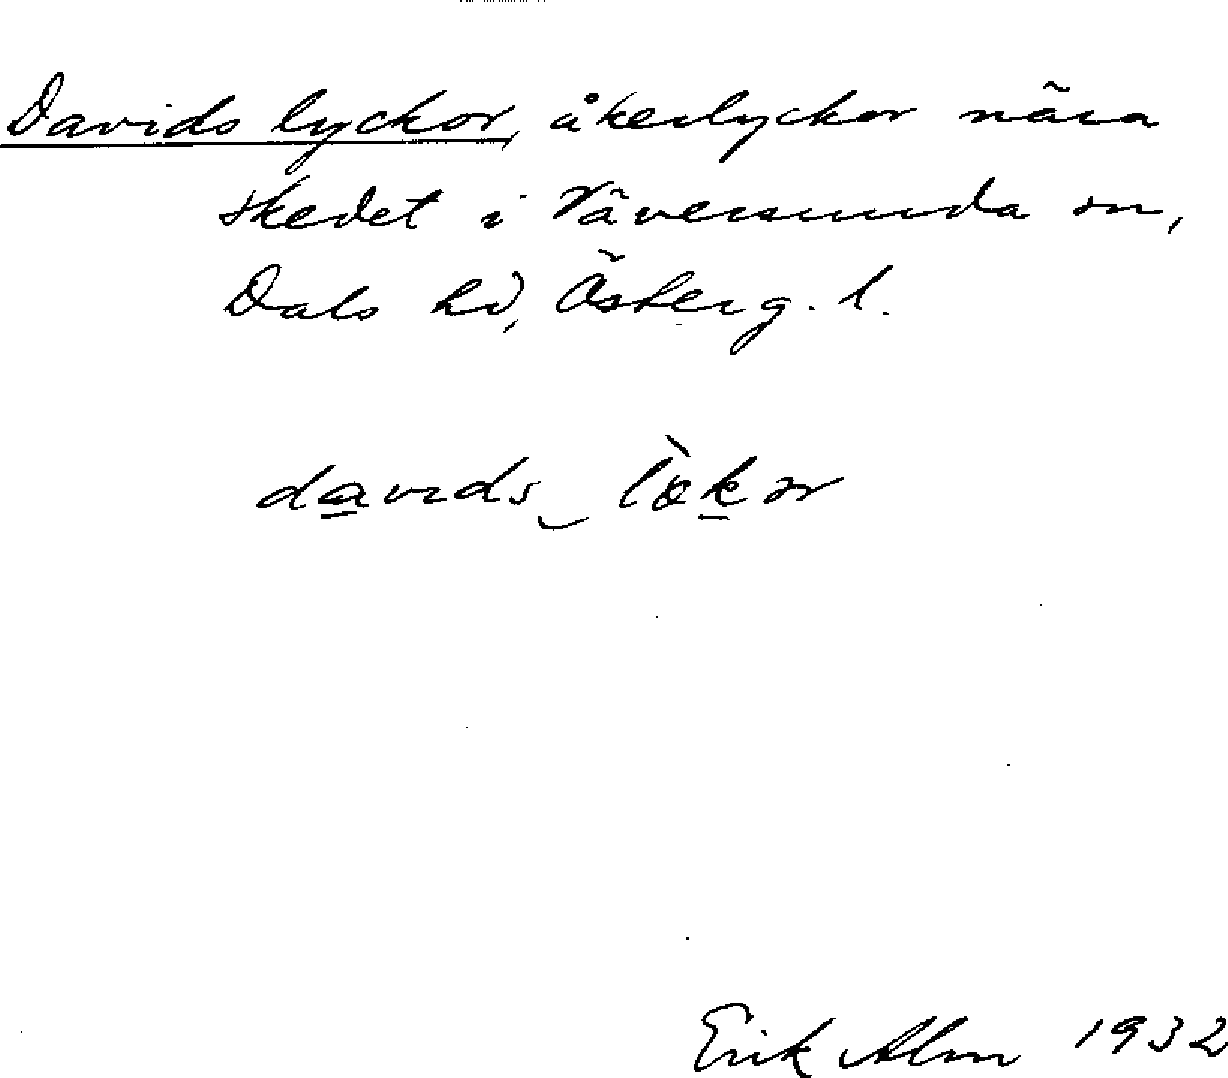 Davids lyckor, åkerlyckor nära
skedet i Väversunda sn,
Dals hd, Österg. l.
davids lökor
Erik Alm 1932